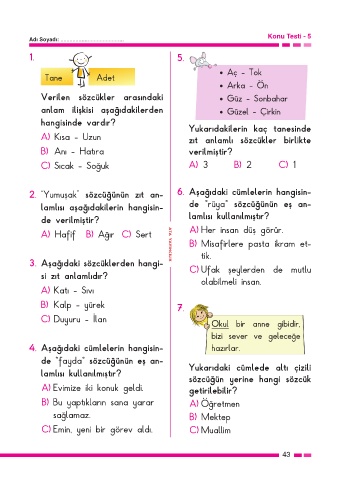 Adı Soyadı: ..............................
Konu Testi - 5
1.
Tane Adet
Verilen sözcükler arasındaki
anlam ilişkisi aşağıdakilerden
hangisinde vardır?
A) Kısa - Uzun
B) Anı - Hatıra
C) Sıcak - Soğuk
2. "Yumuşak" sözcüğünün zıt an-
lamlısı aşağıdakilerin hangisin-
de verilmiştir?
A) Hafif B) Ağır C) Sert
3. Aşağıdaki sözcüklerden hangi-
si zıt anlamlıdır?
A) Katı - Sıvı
B) Kalp - yürek
C) Duyuru - İlan
4. Aşağıdaki cümlelerin hangisin-
de "fayda" sözcüğünün eş an-
lamlısı kullanılmıştır?
A) Evimize iki konuk geldi.
B) Bu yaptıkların sana yarar
sağlamaz.
C) Emin, yeni bir görev aldı.
5.
• Aç - Tok
• Arka - Ön
• Güz - Sonbahar
• Güzel - Çirkin
Yukarıdakilerin kaç tanesinde
zıt anlamlı sözcükler birlikte
verilmiştir?
A) 3 B) 2 C) 1
6. Aşağıdaki cümlelerin hangisin-
de "rüya" sözcüğünün eş an-
lamlısı kullanılmıştır?
A) Her insan düş görür.
B) Misafirlere pasta ikram et-
tik.
C) Ufak şeylerden de mutlu
olabilmeli insan.
7.
Okul bir anne gibidir,
bizi sever ve geleceğe
hazırlar.
Yukarıdaki cümlede altı çizili
sözcüğün yerine hangi sözcük
getirilebilir?
A) Öğretmen
B) Mektep
C) Muallim
43